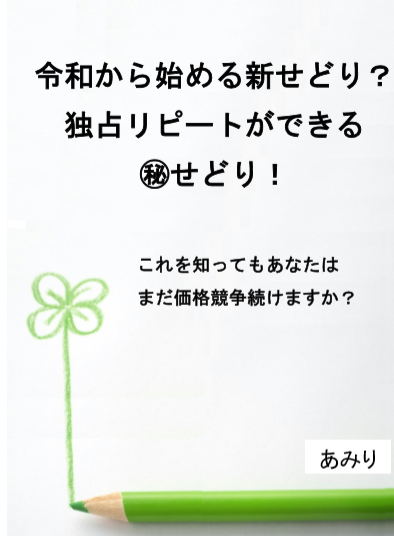 令和から始める新せどり？
独占リピートができる
㊙せどり！
これを知ってもあなたは
まだ価格競争続けますか？
あみり